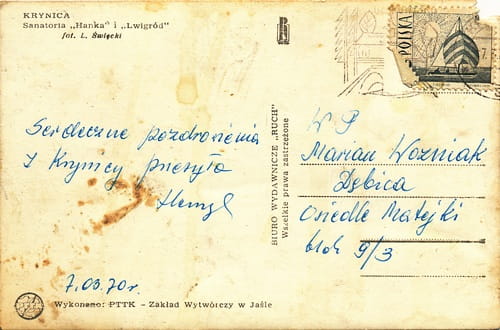 KRYNICA
Sanatoria „Hanka” i „Lwigród”
fot. L. Święcki
POLSKA
Serdeczne pozdrowienia
z Krynicy przesyła
7.03.70r.
Wykonano: PTTK - Zakład Wytwórczy w Jaśle
BIURO WYDAWNICZE „RUCH”
Wszelkie prawa zastrzeżone
WP
Marian Wozniak
Dębica
Osiedle Matejki
blok 9/3